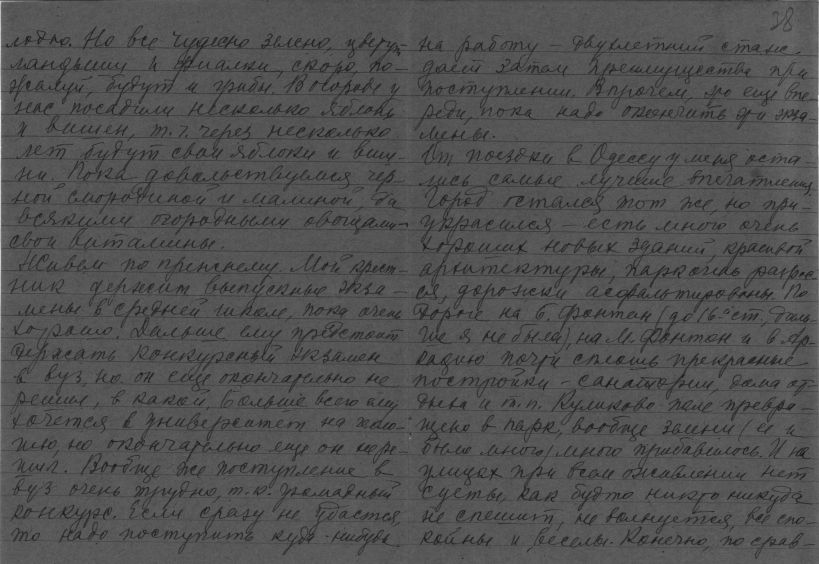 38
лодно. Но все чудесно зелено, цветут
ландыши и фиалки, скоро, по-
жалуй, будут и грибы. В огороде у
нас посадили несколько яблонь
и вишен, т.ч. через несколько
лет будут свои яблоки и виш-
ни. Пока довольствуемся чер-
ной смородиной и малиной, да
всякими огородными овощами –
свои витамины.
Живем по прежнему. Мой крест-
ник держит выпускные экза-
мены в средней школе, пока очень
хорошо. Дальше ему предстоит
держать конкурсный экзамен
в вуз, но он еще окончательно не
решил, в какой, больше всего ему
хочется в университет на хими-
ю, но окончательно еще он не ре-
шил. Вообще же поступление в
вуз очень трудно, т.к. громадный
конкурс. Если сразу не удастся,
то надо поступить куда-нибудь
на работу – двухлетний стаж
дает затем преимущества при
поступлении. Впрочем, это еще впе-
реди, пока надо окончить эти экза-
мены.
От поездки в Одессу у меня оста-
лись самые лучшие впечатления.
Город остался тот же, но при-
украсился – есть много очень
хороших новых зданий, красивой
архитектуры, парк очень разрос-
ся, дорожки асфальтированы. По
дороге на Б. Фонтан (до 16-ой ст., даль-
ше я не была), на М. Фонтан и в Ар-
кадию почти сплошь прекрасные
постройки – санатории, дома от-
дыха и т.п. Куликово поле превра-
щено в парк, вообще зелени (её и
было много) много прибавилось. И на
улицах при всем оживлении нет
суеты, как будто никто никуда
не спешит, не волнуется, все спо-
койны и веселы. Конечно, по срав-